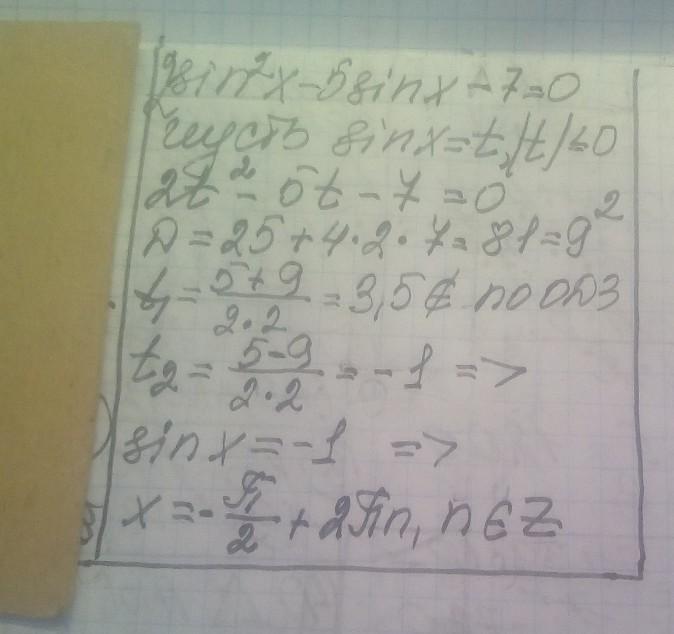 2sin²x-5sinx-7=0
Пусть sinx=t, |t|≤0
2t²-5t-7=0
D=25+4·2·7=81=9²
t₁=(5+9)/(2·2)=3,5∉ по ОДЗ
t₂=(5-9)/(2·2)=-1 =>
sinx=-1 =>
x=-π/2+2πn, n∈Z